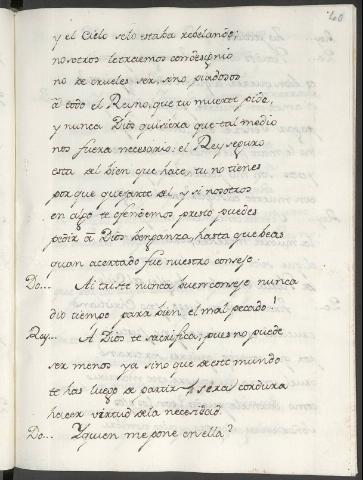 40
y el Cielo selo estaba rebelando;
nosotros lo traemos con designio
no de crueles ser, sino piadosos
â todo el Reyno, que tu muerte pide,
y nunca Dios quisiera que tal medio
nos fuera necesario: el Rey seguro
esta del bien que hace, tu no tienes
por que quejarte del, y si nosotros
en algo te ofendemos presto puedes
pedir â Dios benganza, hasta que beas
quan acertado fue nuestro consejo.
Do... Ai triste nunca buen consejo nunca
dio tiempo para bien el mal pecado!
Rey... A Dios te sacrifica, pues no puede
ser menos ya sino que de este mundo
te has luego de partir y sera cordura
hacer virtud dela necesidad.
Do... Y quien me pone en ella?